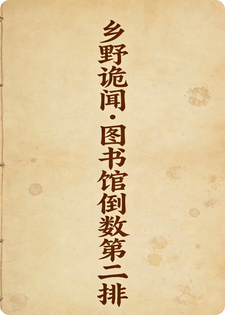 乡野诡闻·图书馆倒数第二排